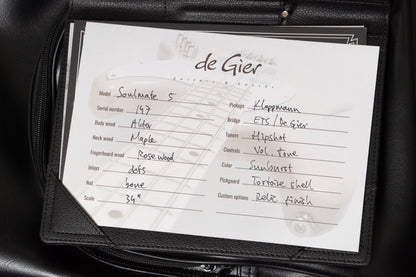 de Gier
guitars & basses
Model Soulmate 5
Serial number 147
Body wood Alder
Neck wood Maple
Fingerboard wood Rosewood
Inlays dots
Nut bone
Scale 34"
Pickups Kloppmann
Bridge ETS / De Gier
Tuners Hipshot
Controls Vol, Tone
Color Sunburst
Pickguard Tortoise shell
Custom options Relic finish